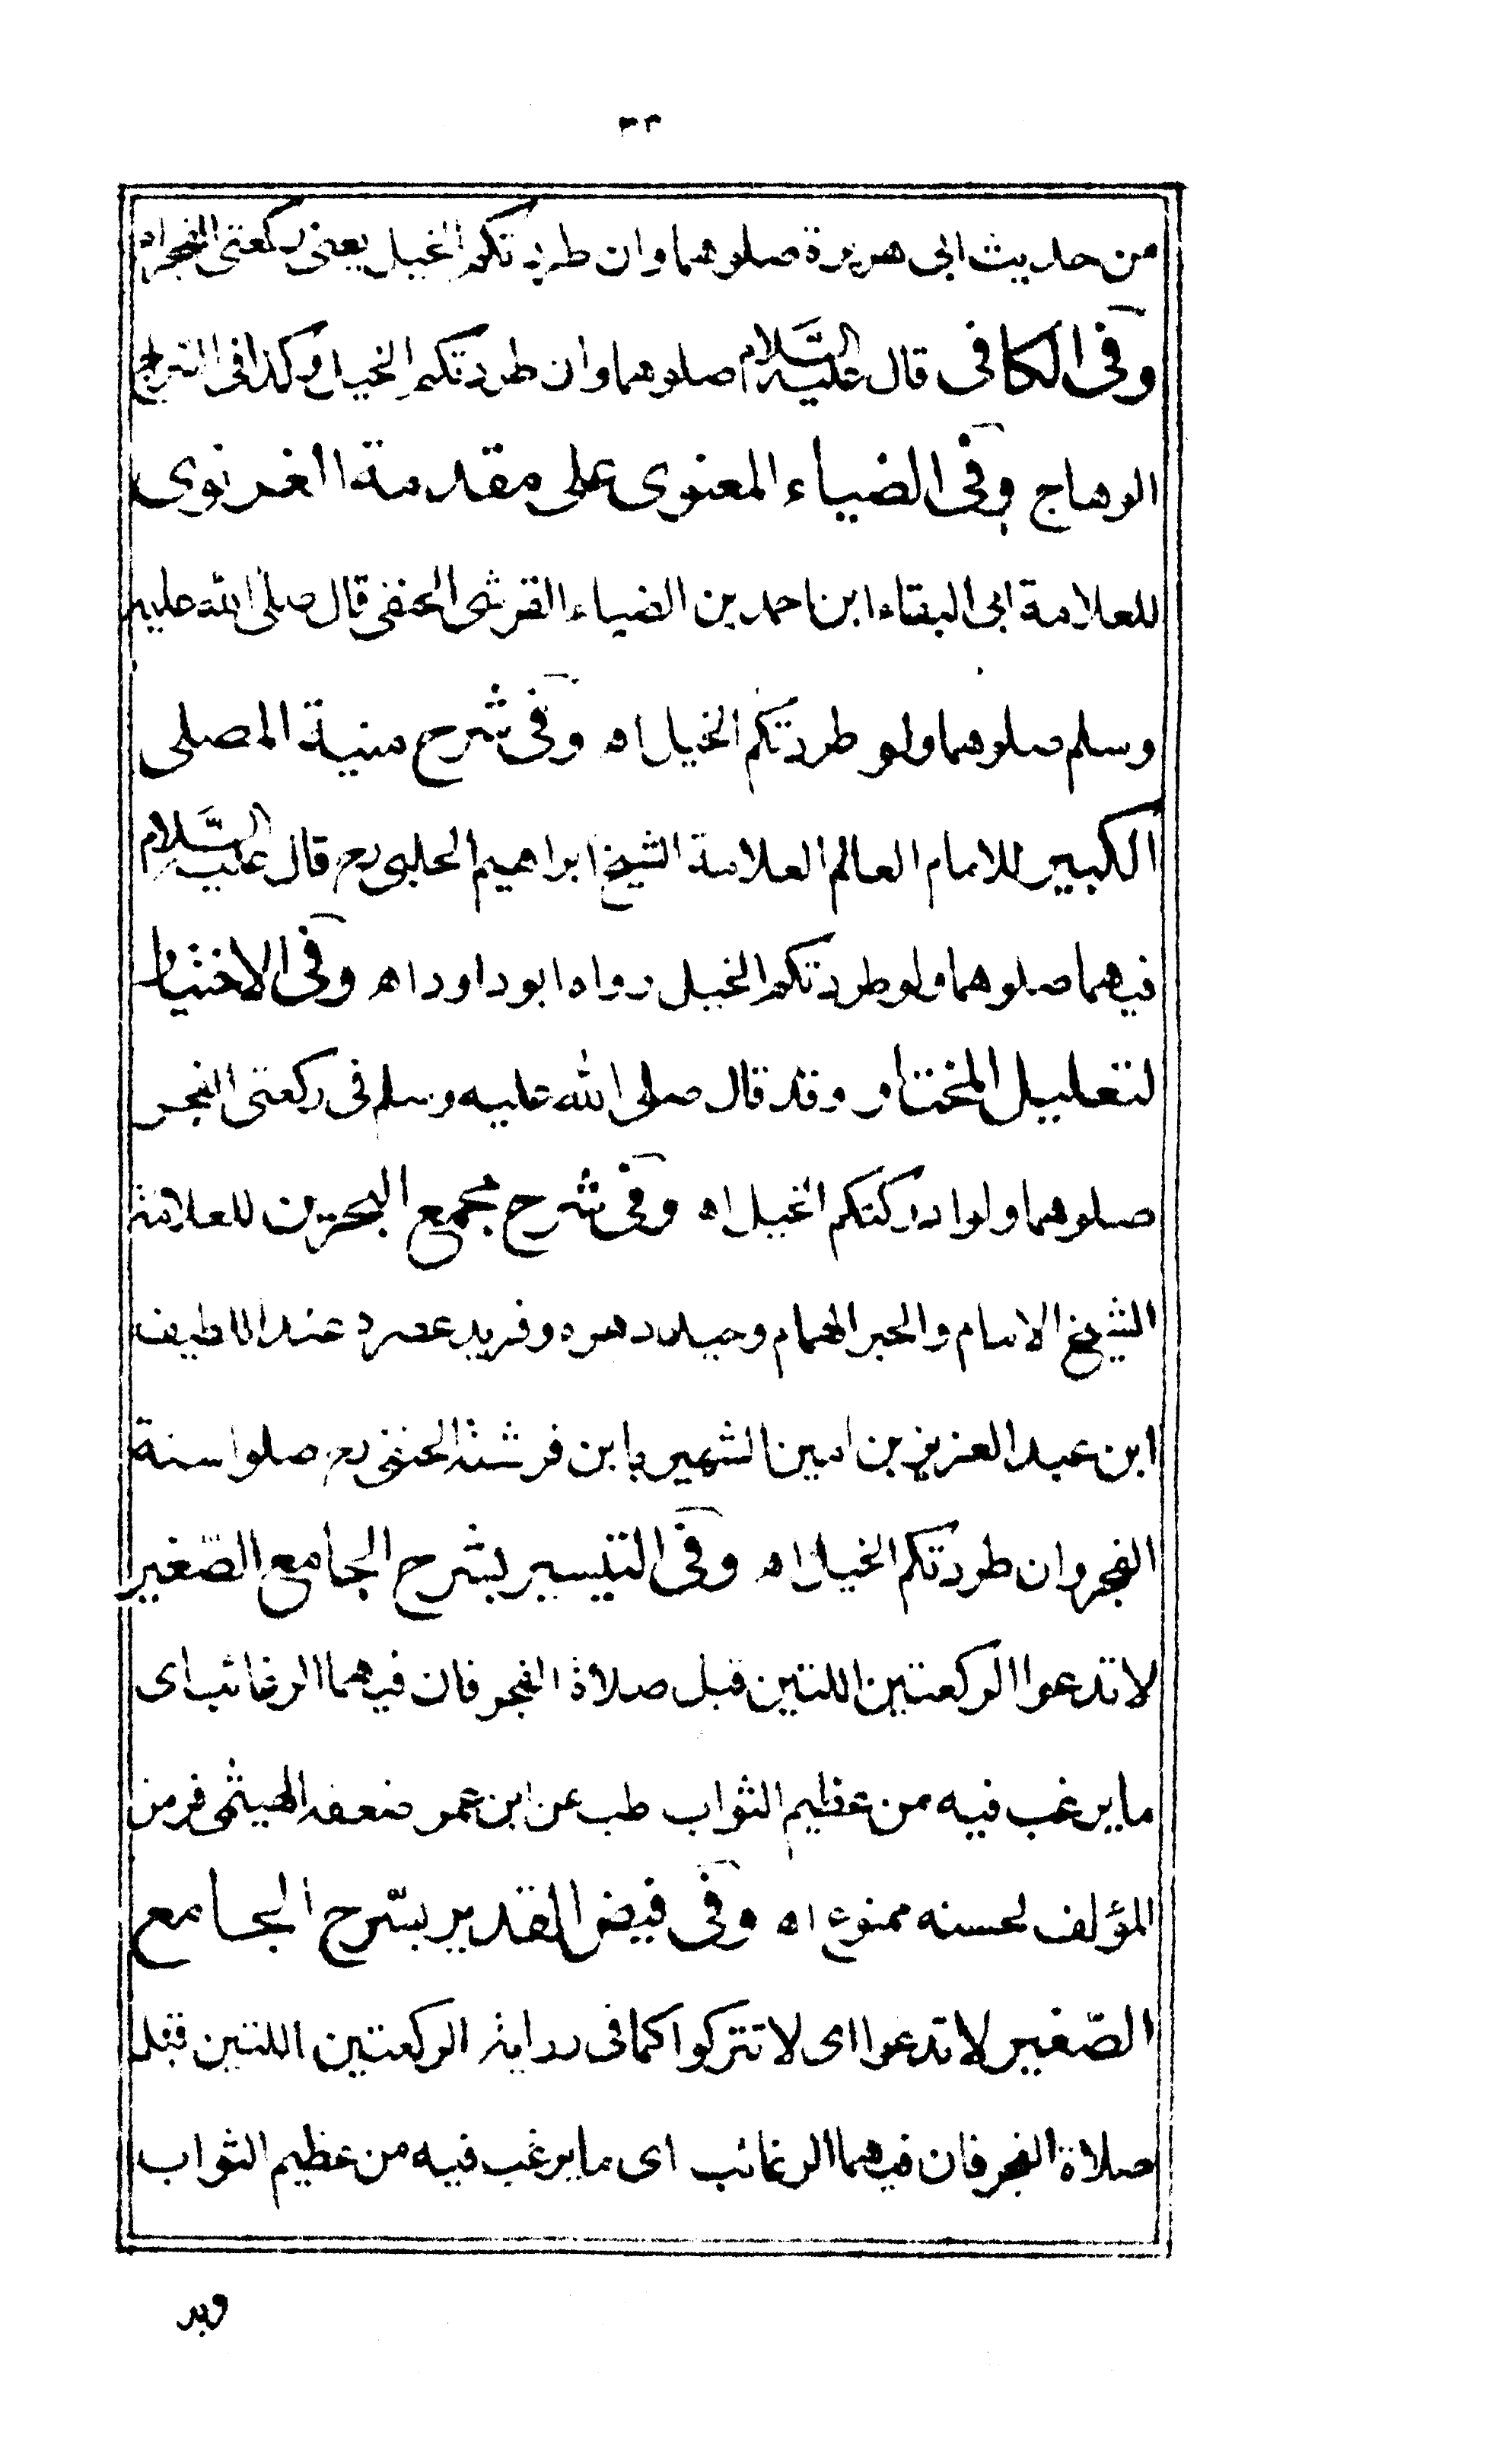 ٣٣
من حديث ابى هريرة صلوهما وان طردتكم الخيل يعنى ركعتى الفجر اه
وفى الكافى قال عليه السلام صلوهما وان طردتكم الخيل وكذا فى السراج
الوهاج وفى الضياء المعنوى على مقدمة الغزنوى
للعلامة ابى البقاء ابن احمد بن الضياء القرشى الحنفى قال صلى الله عليه
وسلم صلوهما ولو طردتكم الخيل اه وفى شرح منية المصلى
الكبير للامام العالم العلامة الشيخ ابراهيم الحلبى رح قال عليه السلام
فيهما صلوهما ولو طردتكم الخيل رواه ابو داود اه وفى الاختيار
لتعليل المختار وقد قال صلى الله عليه وسلم فى ركعتى الفجر
صلوهما ولو ادركتكم الخيل اه وفى شرح مجمع البحرين للعلامة
الشيخ الامام والحبر الهمام وحيد دهره وفريد عصره عبد اللطيف
ابن عبد العزيز بن امين الشهير بابن فرشته الحنفى رح صلوا سنة
الفجر وان طردتكم الخيل اه وفى التيسير بشرح الجامع الصّغير
لا تدعوا الركعتين اللتين قبل صلاة الفجر فان فيهما الرغائب اى
ما يرغب فيه من عظيم الثواب طب عن ابن عمر ضعفه الهيثمى فرمز
المؤلف لحسنه ممنوع اه وفى فيض القدير بشرح الجامع
الصّغير لا تدعوا اى لا تتركوا كما فى رواية الركعتين اللتين قبل
صلاة الفجر فان فيهما الرغائب اى ما يرغب فيه من عظيم الثواب
وبه